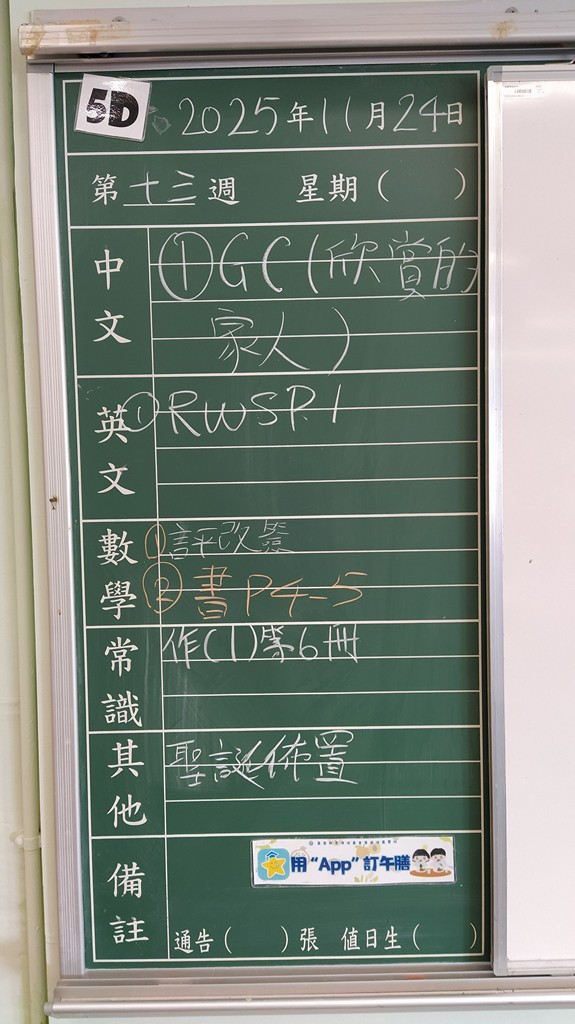 5D
2025年11月24日
第十三週 星期( )
中文
①GC(欣賞的
家人)
英文
①RWSP.1
數學
①評改簽
②書P4-5
常識
作(1)第6冊
其他
聖誕佈置
備註
用“App”訂午膳
通告( )張 值日生( )